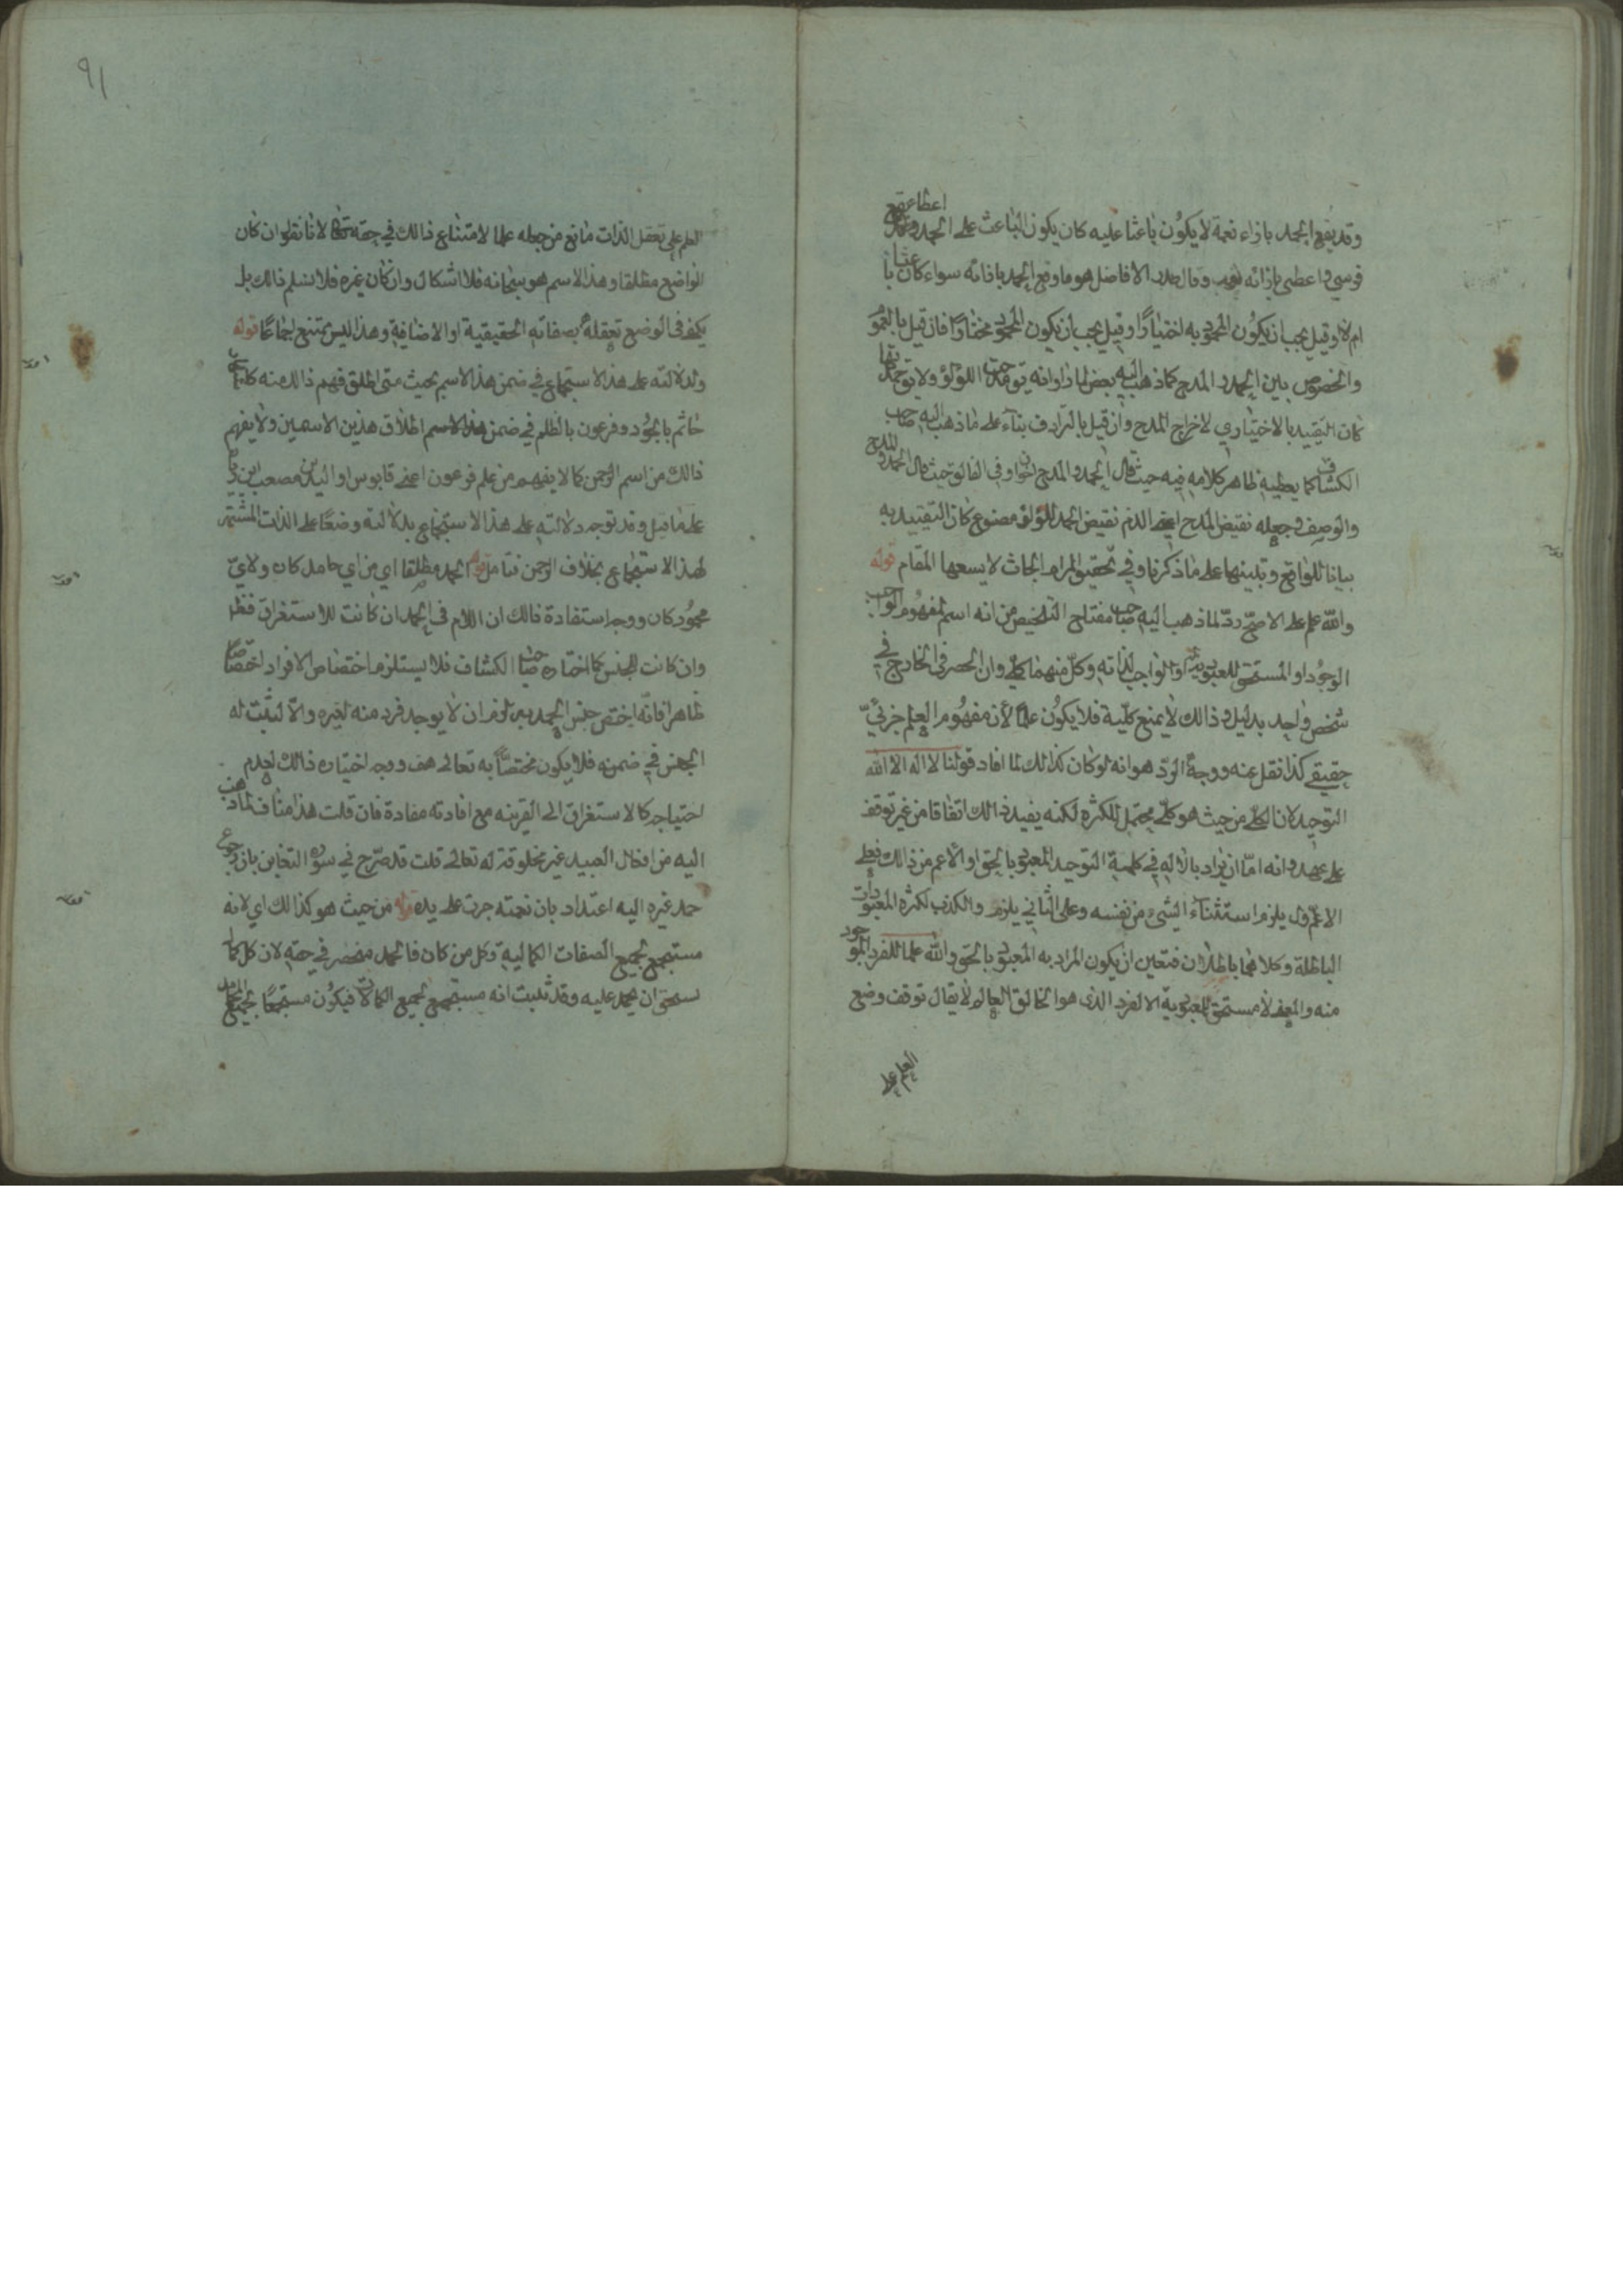 وقد يقع الحمد بازاء نعمة لا يكون باعثا عليه كان يكون الباعث على الحمد
فرسي واعطى بازائه وقال صدر الافاضل هو ما وقع الحمد باذائه سواء كان باعثا
ام لا وقيل يجب ان يكون المحمود به اختيارًا وقيل يجب ان يكون المحمود مختارًا فان قيل بالعموم
والخصوص بين الحمد و المدح كما ذهب اليه بعض اللؤلؤ ولا يقال حمدتها
كان التقييد بالاختياري لاخراج المدح وان قيل بالترادف بناء على ما ذهب اليه صاحب
الكشاف كما يعطيه ظاهر كلامه فيه حيث قال الحمد والمدح اخوان وفي الفائق حيث قال الحمد المدح
والوصف وجعله نقيض المدح اعني الذم نقيض الحمد للؤلؤ مصنوع كان التقييد به
بيانا للواقع وتنبيها على ما ذكرنا وفي تحقيق المرام ابحاث لا يسعها المقام قوله
والله علم على الاصح ردّ لما ذهب اليه صاحب مفتاح التلخيص من انه اسم لمفهوم الواجب
الوجود او المستحق للعبودية او الواجب لذاته وكل منهما كلي وان انحصر في الخارج في
شخص واحد بدليل وذالك لا يمنع كلية فلا يكون علمًا لان مفهوم العلم جزئيّ
حقيقي كذا نقل عنه ووجه الردّ هو انه لو كان كذالك لما افاد قولنا لا اله الا الله
التوحيد لان الكلي من حيث هو كلي محتمل للكثرة لكنه يفيد ذالك اتفاقا من غير توقف
على عهد وانه امّا ان يراد بالاله في كلمة التوحيد المعبود بالحق او الاعم من ذالك فعلى
الاول يلزم استثناء الشيء من نفسه وعلى الثاني يلزم والكذب لكثرة المعبودات
الباطلة وكلاهما باطلان فتعين ان يكون المراد به المعبود بالحق والله علما للفرد الموجود
منه والمعنى لا مستحق للعبودية الا الفرد الذى هو الخالق العالم لا يقال توقف وضع
العلم على
٩١
العلم على تعقل الذات مانع من جعله علما لامتناع ذالك في حقه تعالى لانا نقول ان كان
الواضع مطلقا وهذا الاسم هو سبحانه فلا اشكال وان كان غيره فلا نسلم ذالك بل
يكفى فى الوضع تعقله بصفاته الحقيقية او الاضافية وهذا ليس بممتنع اجماعًا قوله
ولدلالته على هذا الاستجماع في ضمن هذا الاسم بحيث متى اطلق فهم ذالك منه كاشتهار
خاتم بالجود وفرعون بالظلم في ضمن هذا الاسم اطلاق هذين الاسمين ولا يفهم
ذالك من اسم الرحمن كما لا يفهم من علم فرعون اعني قابوس او الوليد بن مصعب ابن ريان
على ما قيل وقد توجه دلالته على هذا الاستجماع بدلالته وضعًا على الذات المشتهر
لهذا الاستجماع بخلاف الرحمن فتامل قوله الحمد مطلقا اي من اي حامد كان ولايّ
محمود كان ووجه استفادة ذالك ان اللام فى الحمد ان كانت للاستغراق فظاهر
وان كانت للجنس كما اختاره صاحب الكشاف فلا يستلزم اختصاص الافراد اختصاصًا
ظاهرًا فانّه اختص جنس الحمد به لزم ان لا يوجد فرد منه لغيره والّا لثبت له
الجنس في ضمنه فلا يكون مختصًّا به تعالى هف ووجه اختياره ذالك لعدم
احتياجه كالاستغراق الى القرينه مع افادته مفادة فان قلت هذا مناف لما ذهب
اليه من افعال العبيد غير مخلوقة له تعالى قلت قد صرّح في سورة التغابن بان رجوع
حمد غيره اليه اعتداد بان نعمته جرت على يده قوله من حيث هو كذالك اي لانه
مستجمع لجميع الصفات الكمالية وكل من كان فالحمد منحصر في حقه لان كل كمال
يستحق ان يحمد عليه وقد ثبت انه مستجمع لجميع الكمالات فيكون مستجمعًا لجميع المحامد